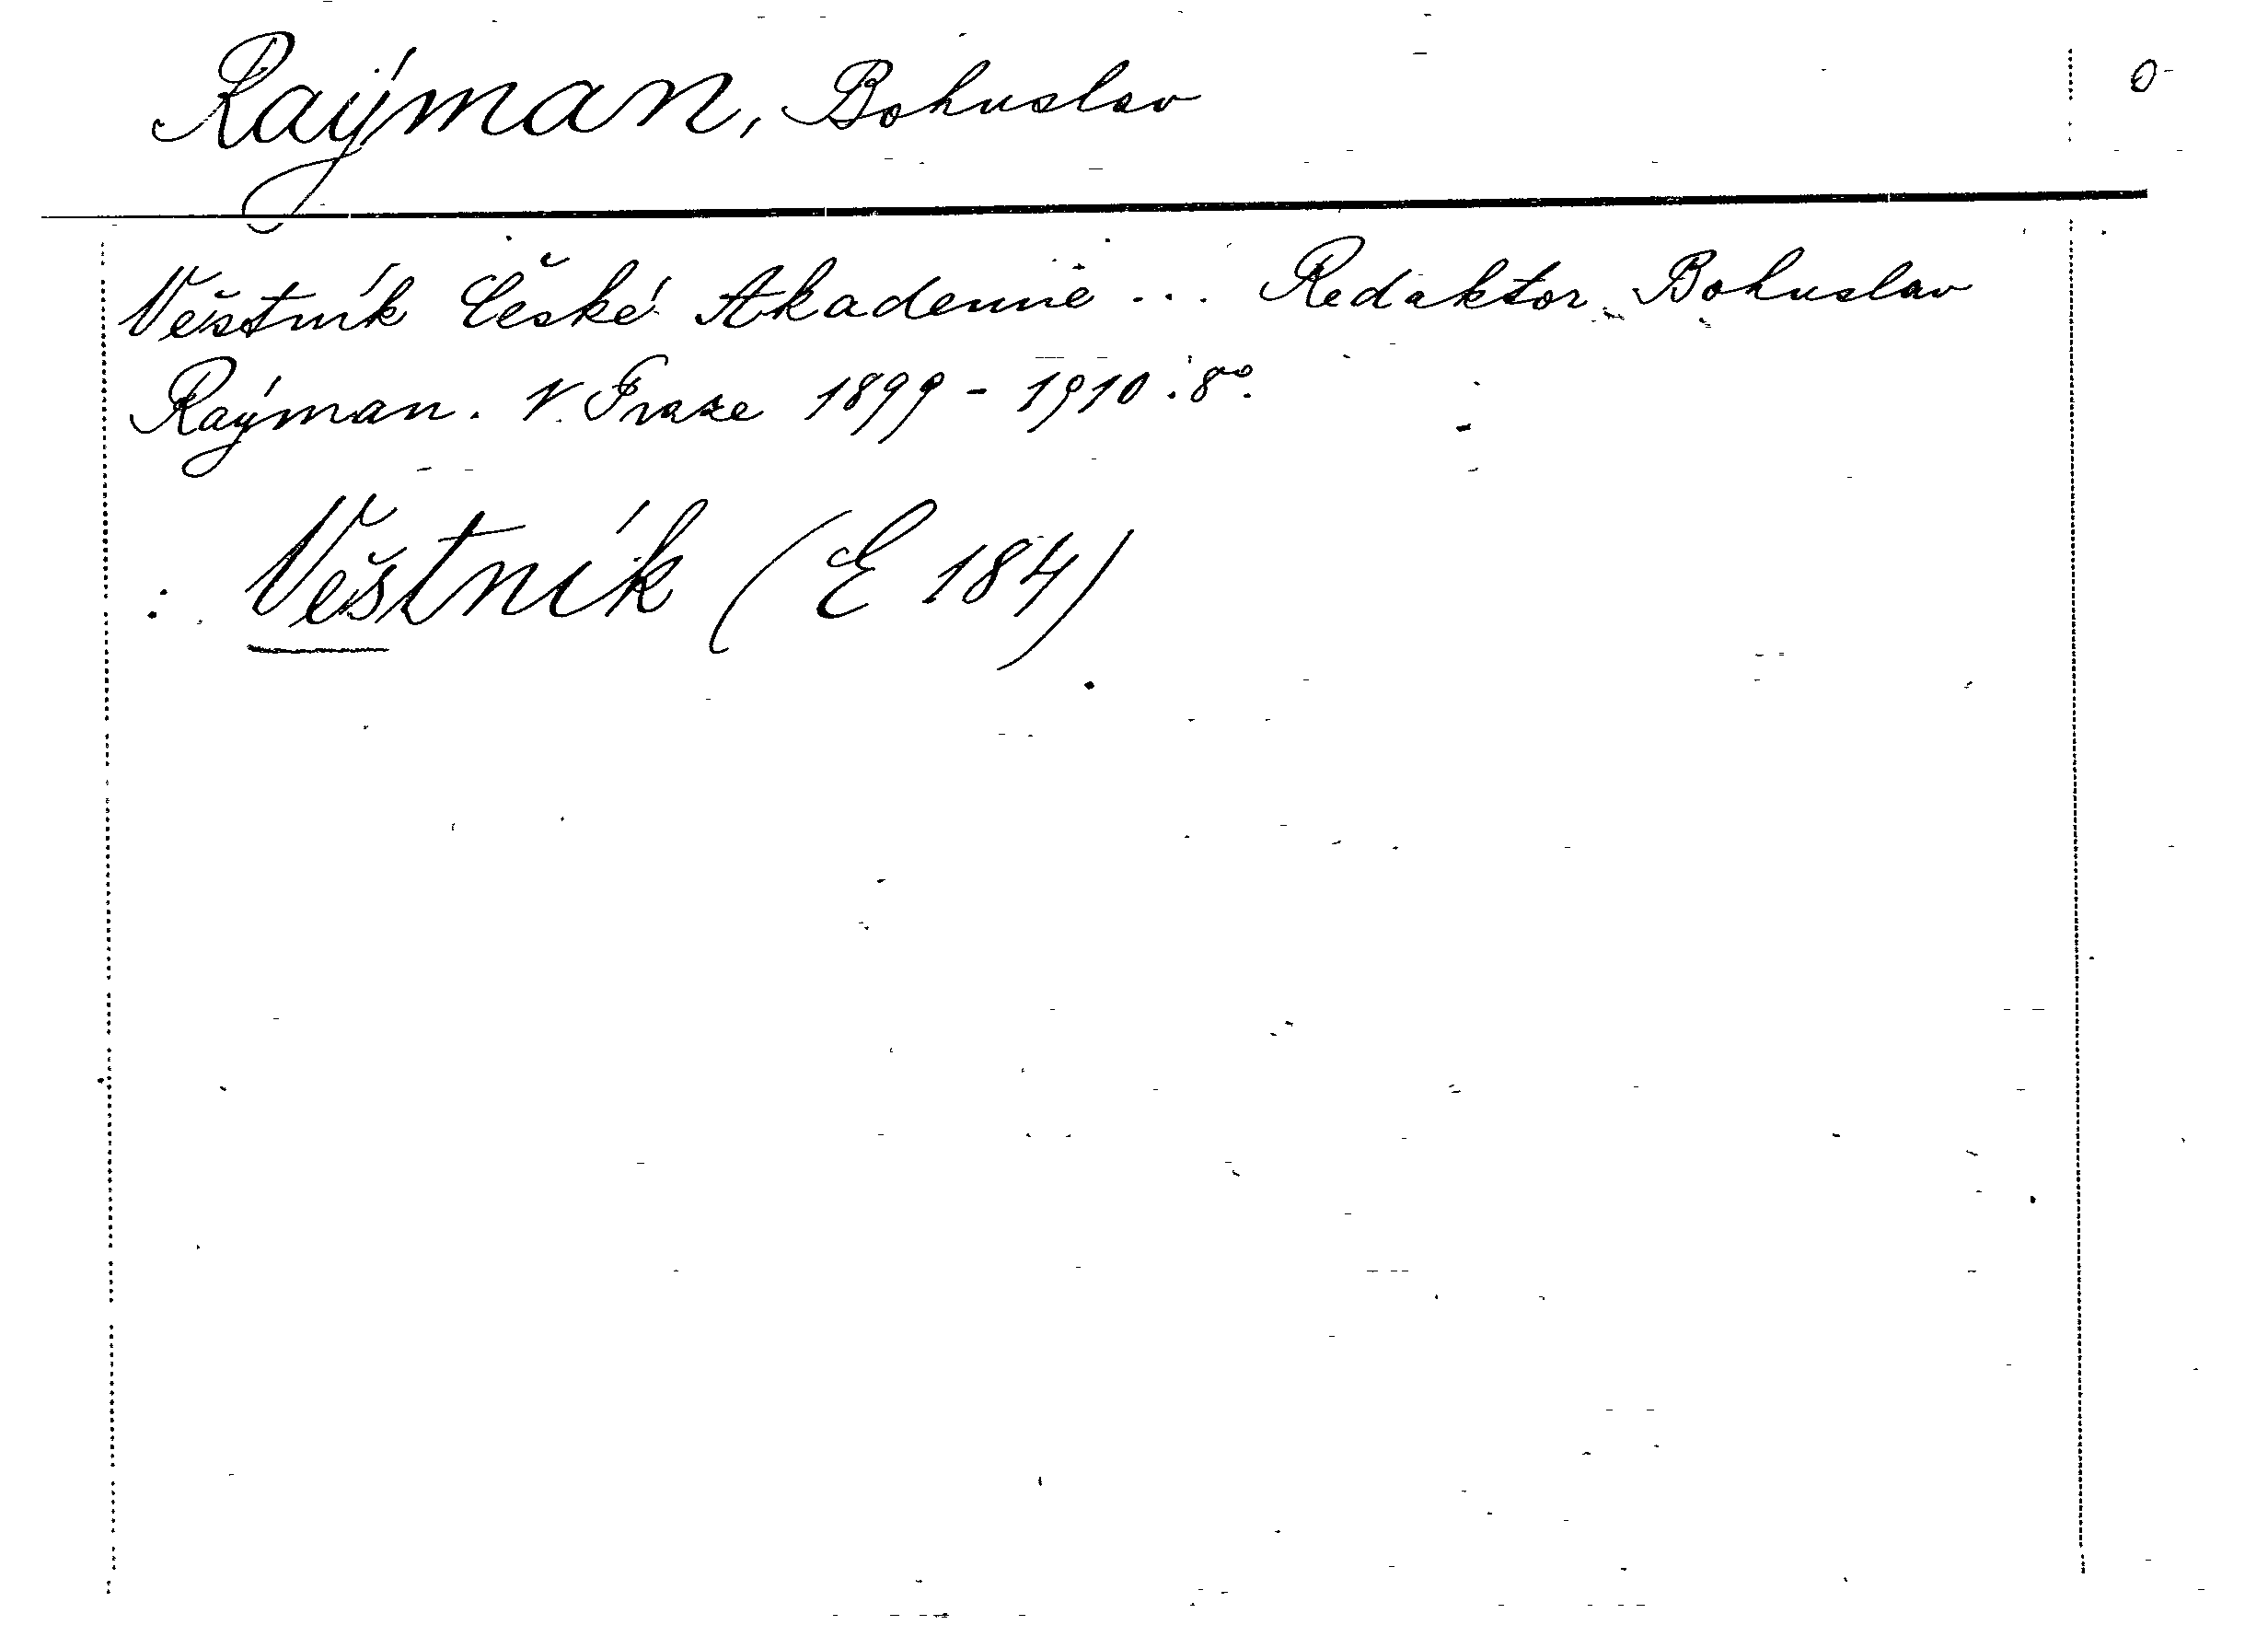 Raýman, Bohuslav
0
Věstník České Akademie ... Redaktor Bohuslav
Raýman. V Praze 1899 - 1910. 8°.
: Věstník (E 184)